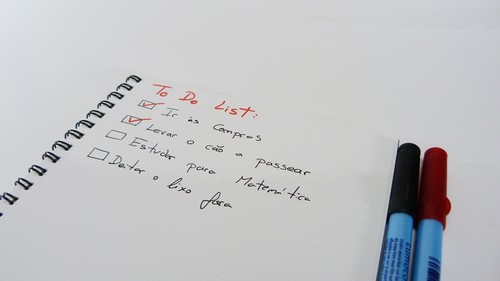 To Do List:
Ir às Compras
Levar o cão a passear
Estudar para Matemática
Deitar o lixo fora